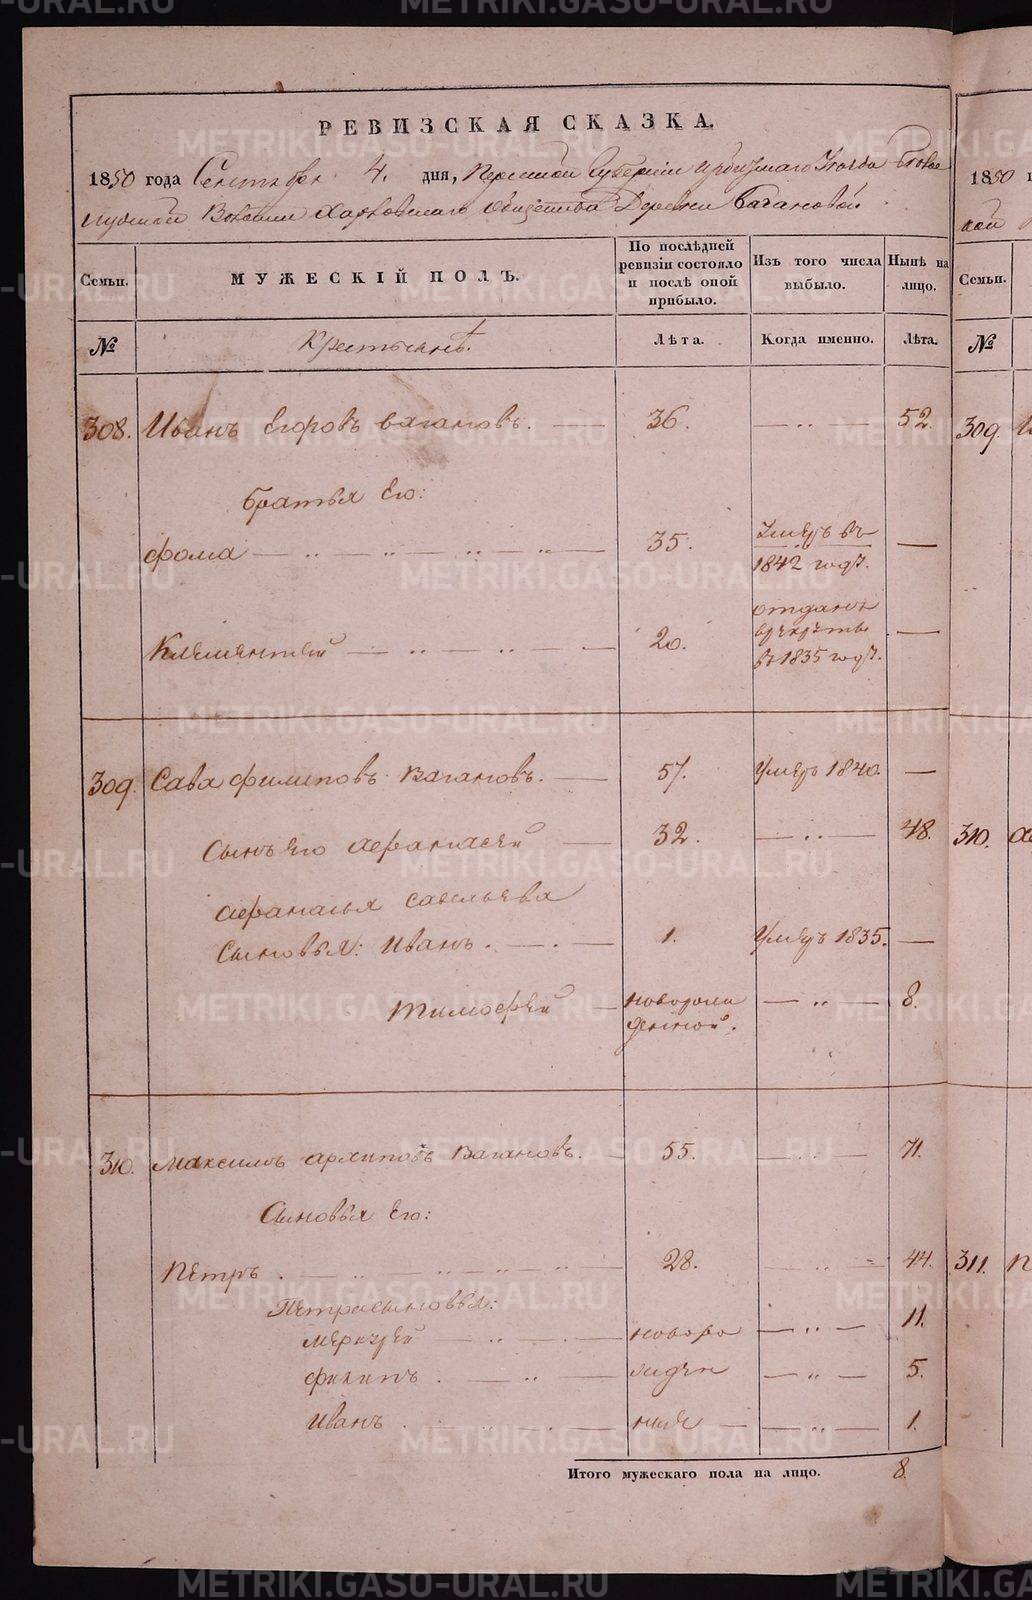 РЕВИЗСКАЯ СКАЗКА.
1850 года Сентября 4. дня, Пермской Губернии Ирбитскаго Уезда
Волости Харловскаго общества Деревни Вагановой
Семьи.
МУЖЕСКІЙ ПОЛЪ.
По послѣдней ревизіи состояло и послѣ оной прибыло.
Изъ того числа выбыло.
Нынѣ на лицо.
№
Крестьянъ.
Лѣта.
Когда именно.
Лѣта.
308. Иванъ Егоровъ Вагановъ. 36. 52.
Братья Его:
Фома 35. Умеръ въ 1842 годѣ.
Клементей 20. отданъ врекруты въ 1835 годѣ.
309. Сава Филиповъ Вагановъ. 57. Умеръ 1840.
Сынъ Его Афанасей 32. 48.
Афанасья Савельева
Сыновья: Иванъ. 1. Умеръ 1835.
Тимофей новорожденной. 8.
310. Максимъ Архиповъ Вагановъ. 55. 71.
Сыновья Его:
Петръ. 28. 44.
Петра сыновья:
Меркурей новоро 11.
Филипъ. жден 5.
Иванъ ныя 1.
Итого мужескаго пола на лицо. 8
1850
Семьи.
№
309.
310.
311.
METRIKI.GASO-URAL.RU